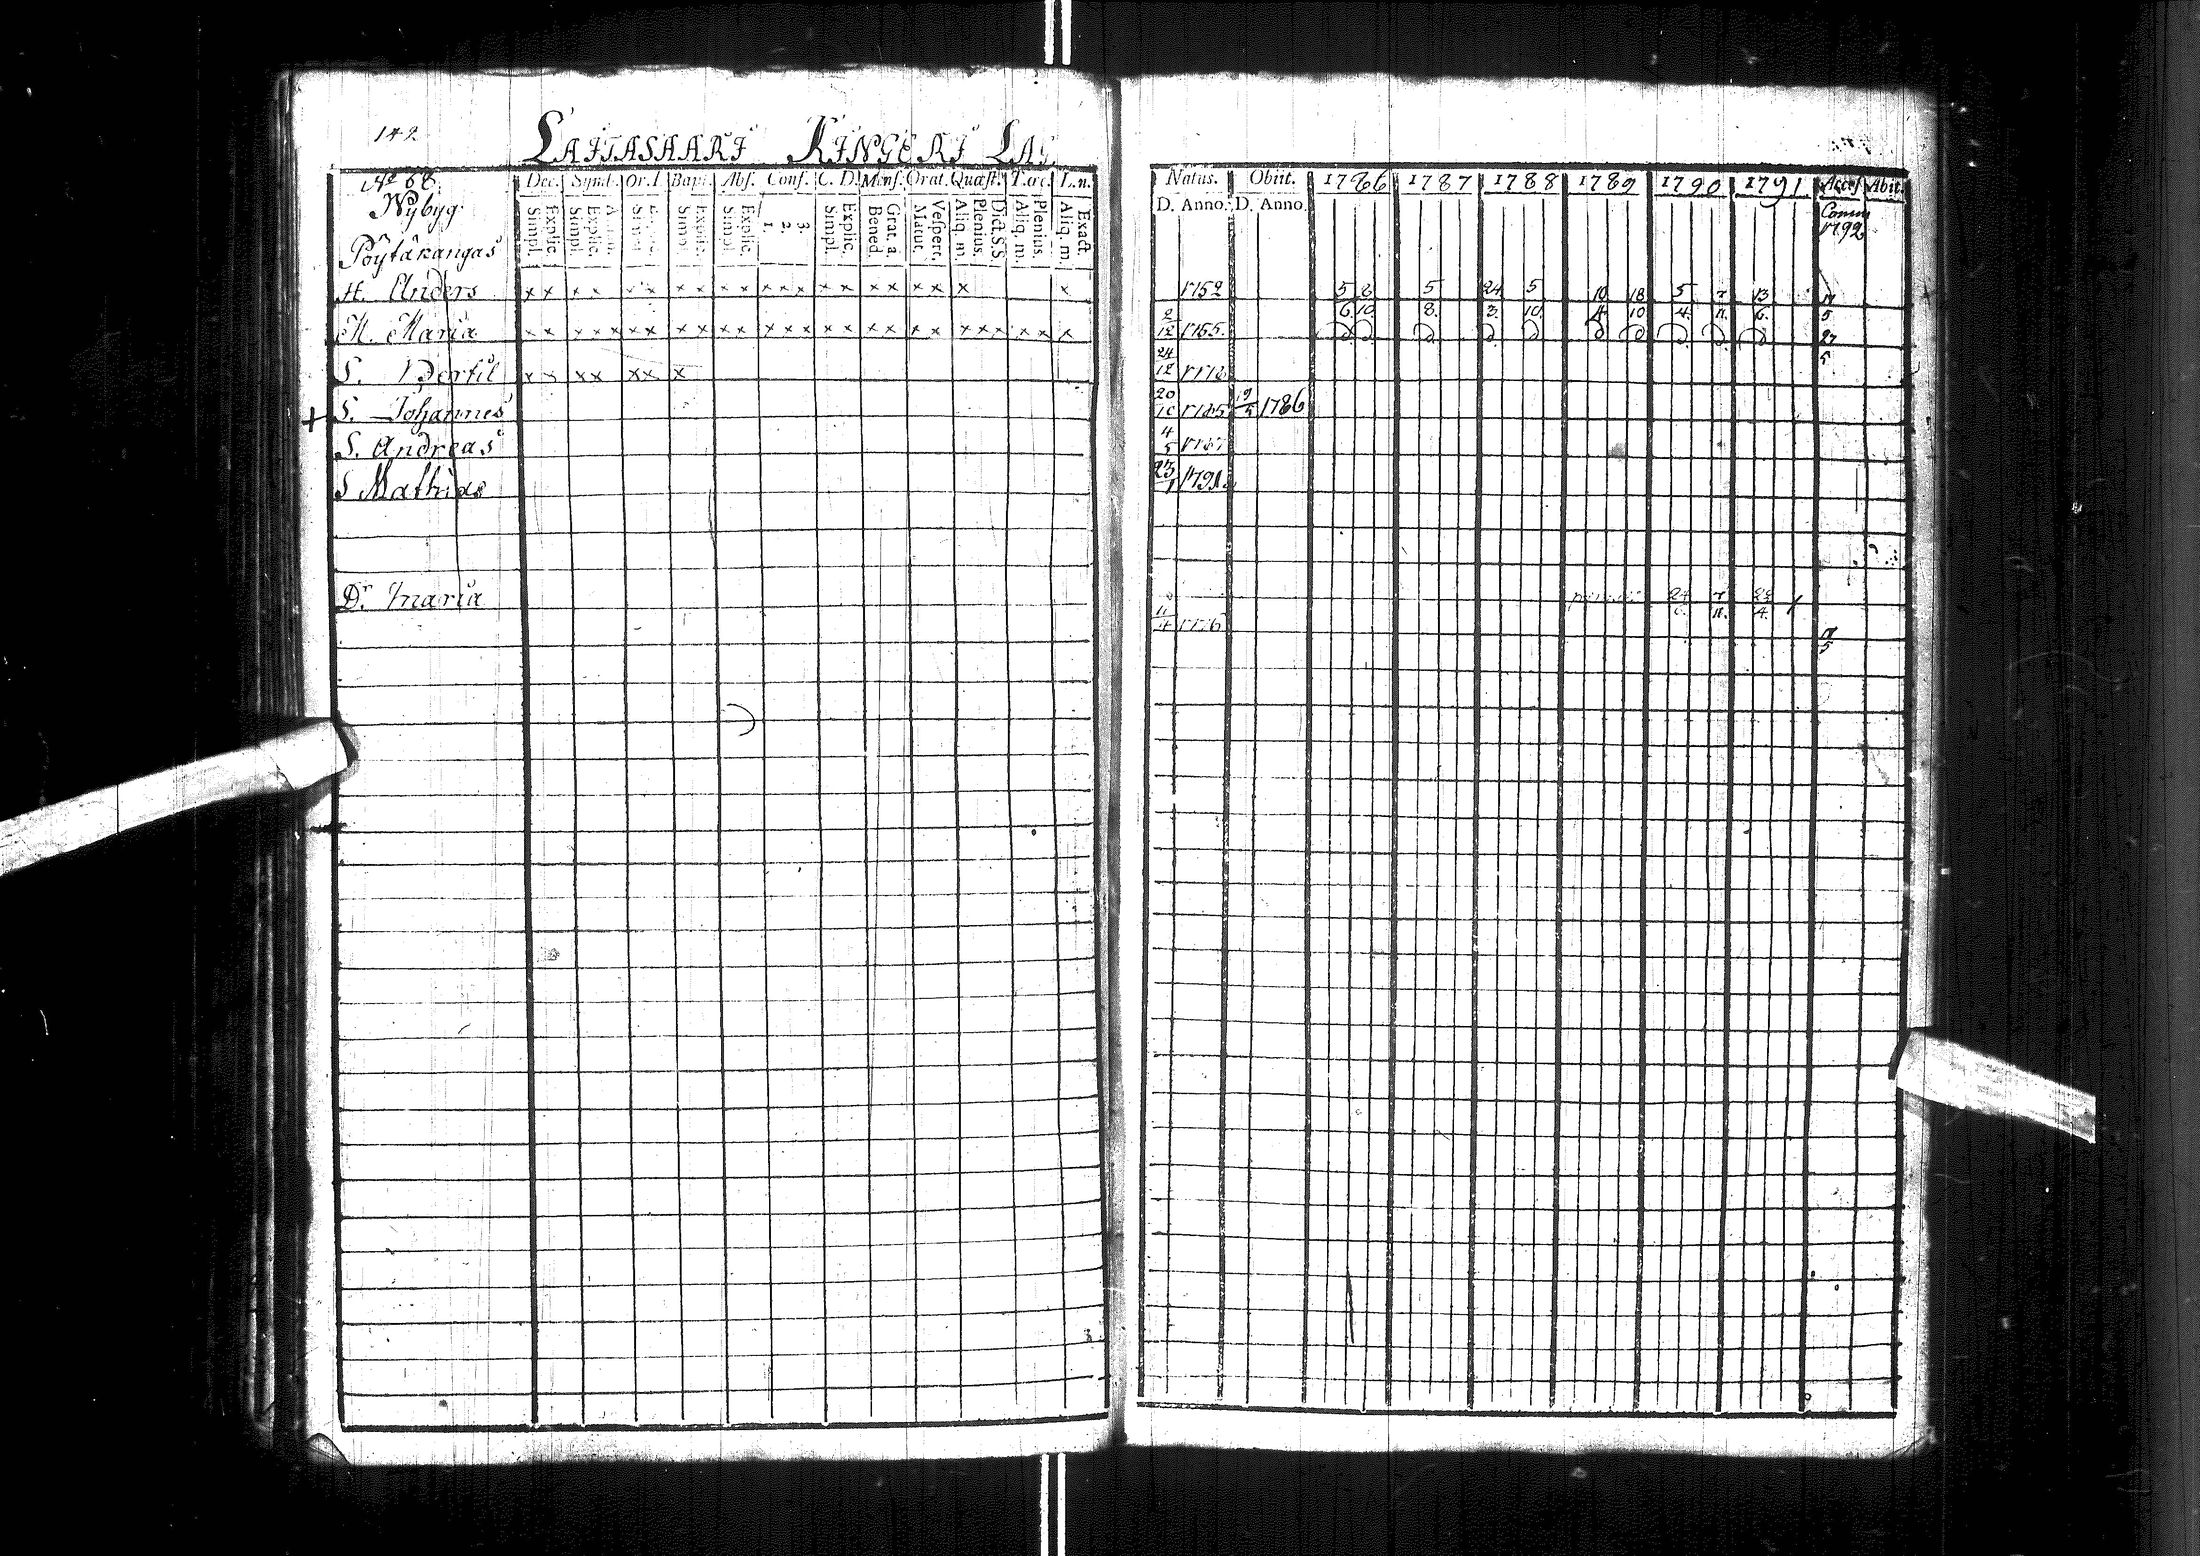 142
LAITASAARI KINGERI LAG
No 68.
Nybyg.
Pöytäkangas
Dec. Symb. Or. D. Bapt. Abs. Conf. C. D. Mens. Orat. Quæst. T. œc. L. n.
Simpl. Explic. Simpl. Explic. Simpl. Explic. Simpl. Explic. 1. 2. 3. Simpl. Explic. Bened. Grat. a. Matut. Vespert. Aliq. m. Plenius. Dict. S. S. Aliq. m. Plenius. Aliq. m. Exact.
H. Anders x x x x x x x x x x x x x x x x x x x x x
M. Maria x x x x x x x x x x x x x x x x x x x x x x x x x x
S. Bertil x x x x x x x
+ S. Johannes
S. Andreas
S Mathias
Dr. Maria
Natus. Obiit. 1786 1787 1788 1789 1790 1791 Access. Abit.
D. Anno. D. Anno. Comm 1792
1752 5/6 8/10 5/8 24/3 5/10 18/10 5/4 7/11 13/6
2/12 1755 27/5
24/12
20/10 1785 1786
4/5 1787
23/1 1791
11/4 1776 7/11